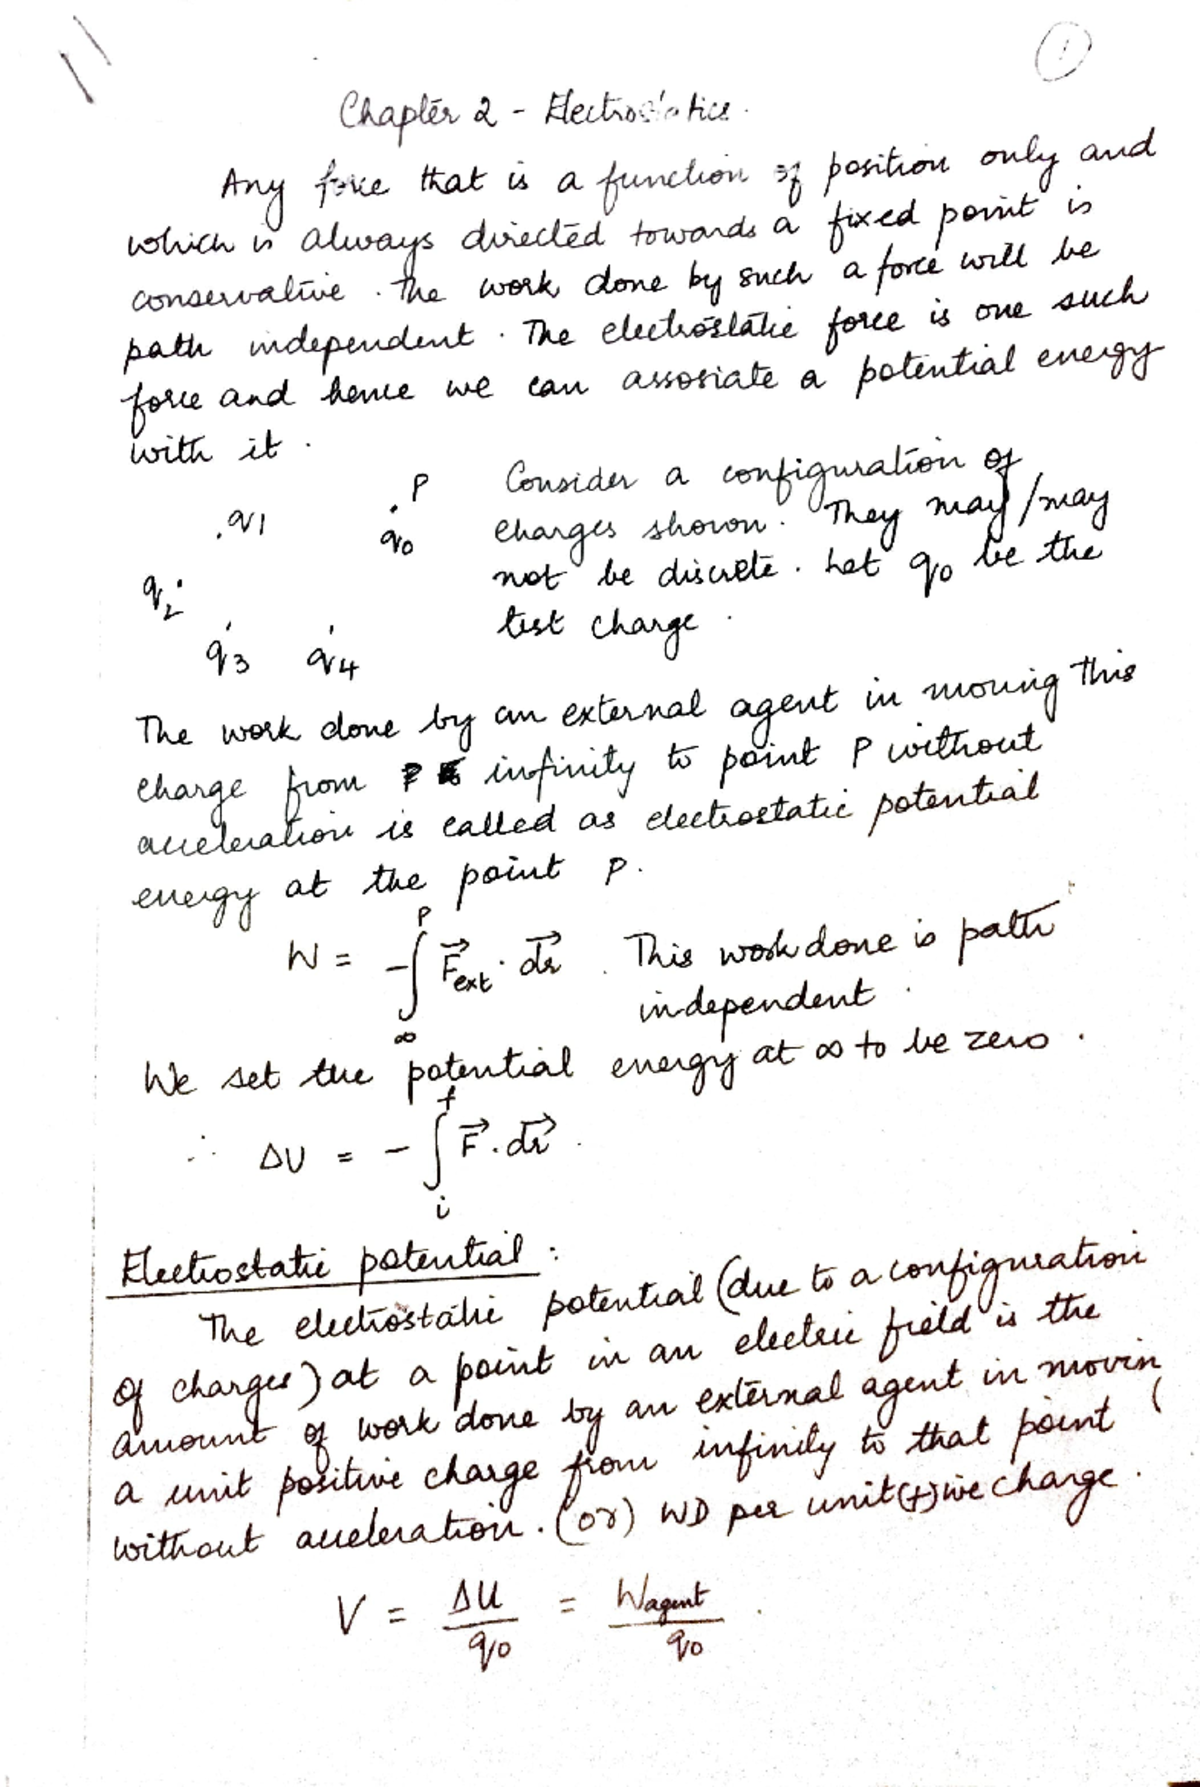 1
Chapter 2 - Electrostatics.
Any force that is a function of position only and
which is always directed towards a fixed point is
conservative. The work done by such a force will be
path independent. The electrostatic force is one such
force and hence we can assosiate a potential energy
with it.
.P Consider a configuration of
.q1 q0 charges shown. They may/may
q2 not be discrete. Let q0 be the
q3 q4 test charge.
The work done by an external agent in moving this
charge from infinity to point P without
acceleration is called as electrostatic potential
energy at the point P.
W = -∫_∞^P F⃗ext · dr⃗. This work done is path
independent.
We set the potential energy at ∞ to be zero.
∴ ΔU = -∫_i^f F⃗ . dr⃗.
Electrostatic potential :
The electrostatic potential (due to a configuration
of charges) at a point in an electric field is the
amount of work done by an external agent in movin
a unit positive charge from infinity to that point
without acceleration. (or) WD per unit (+)ive charge.
V = ΔU/q0 = Wagent/q0.